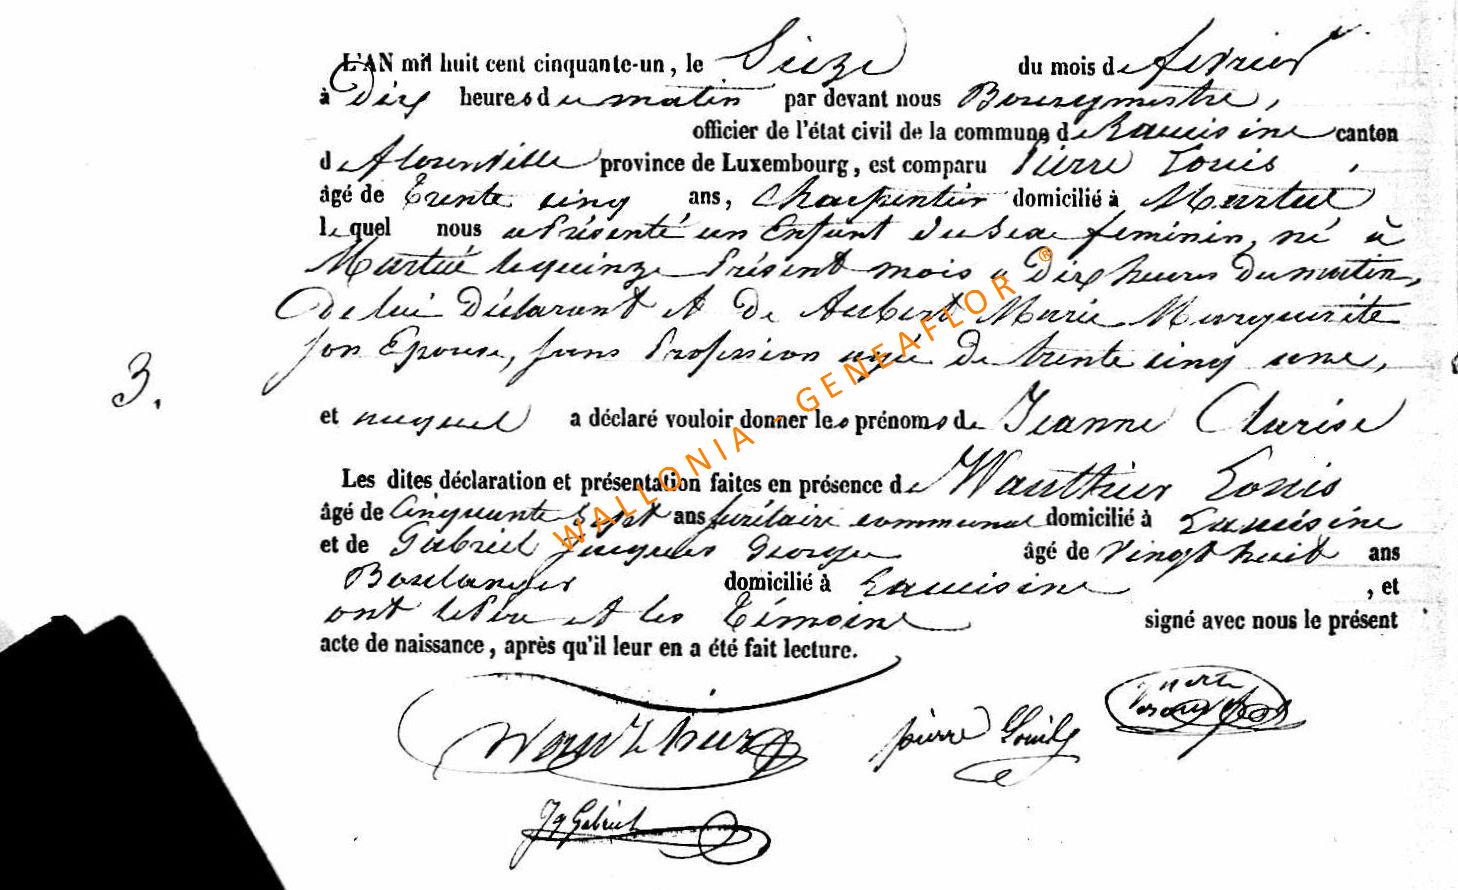 L'AN mil huit cent cinquante-un, le Seize du mois de février
à Dix heures du matin par devant nous Bourgmestre,
officier de l'état civil de la commune de Lacuisine canton
de florenville province de Luxembourg, est comparu Pierre Louis,
âgé de trente cinq ans, Charpentier domicilié à Martué
lequel nous a Présenté un Enfant du Sexe feminin, né à
Martué le quinze Présent mois a Dix heures Du matin,
De lui Déclarant et De Aubert Marie Marguerite
son Epouse, sans Profession agée De trente cinq ans,
3.
et auquel a déclaré vouloir donner les prénoms de Jeanne Clarise
Les dites déclaration et présentation faites en présence de Wauthier Louis
âgé de Cinquante Sept ans secrétaire communal domicilié à Lacuisine
et de Gabriel Jacques George âgé de vingt huit ans
Boulanger domicilié à Lacuisine, et
ont le Père et les Témoins signé avec nous le présent
acte de naissance, après qu'il leur en a été fait lecture.
Wauthier pierre Louis
Jq Gabriel
WALLONIA - GENEAFLOR ®